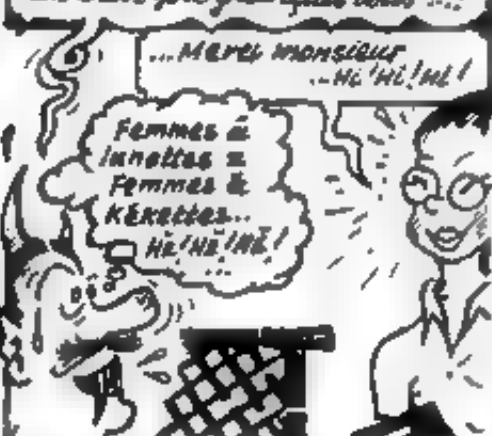 ...Merci monsieur
...Hi! Hi! Hi!
Femmes à
lunettes =
Femmes à
kékettes...
Hé! Hé! Hé!
...